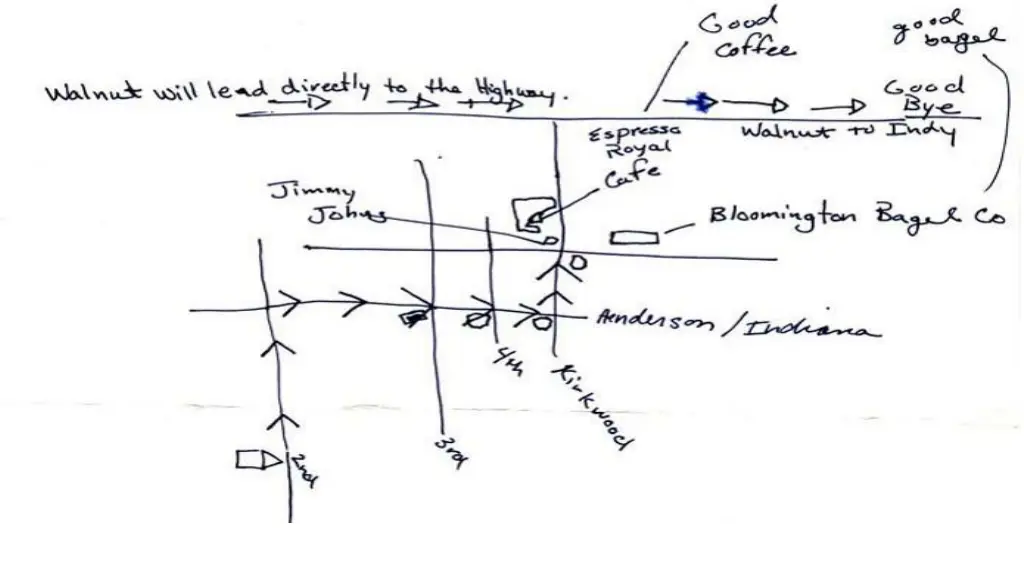 Good
Coffee
good
bagel
Walnut will lead directly to the Highway.
Good
Bye
Espresso
Royal
Cafe
Walnut to Indy
Jimmy
Johns
Bloomington Bagel Co
Henderson/Indiana
4th
Kirkwood
3rd
2nd